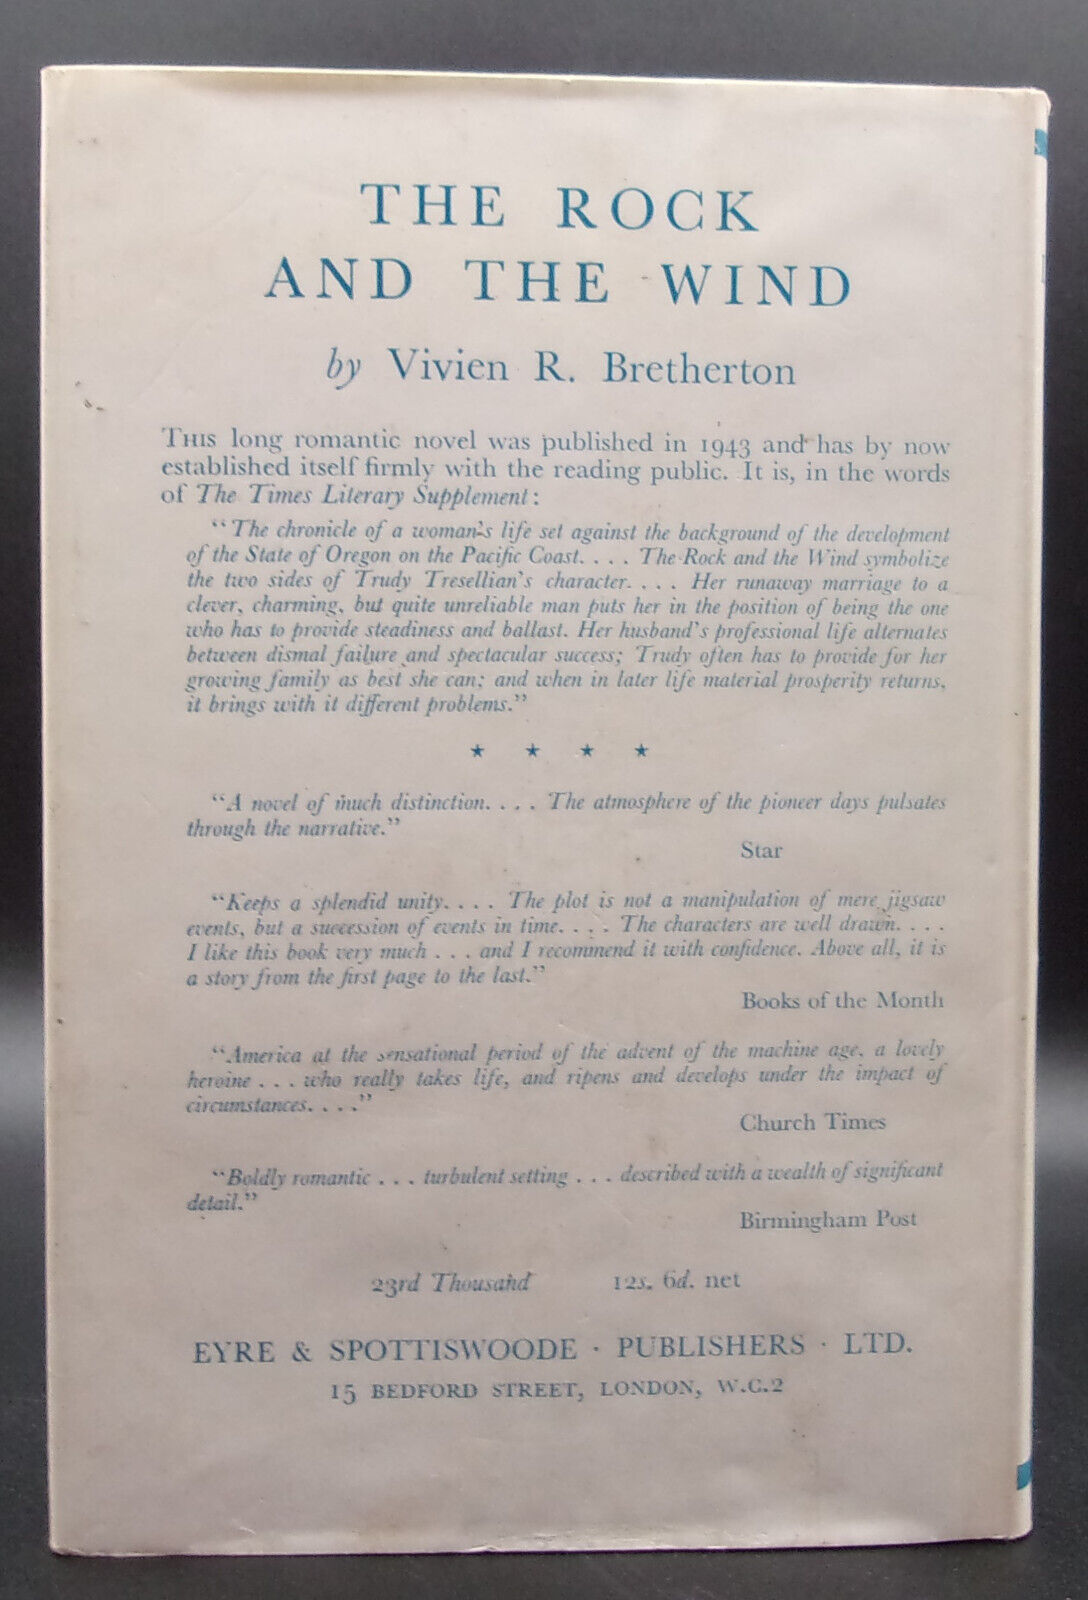 THE ROCK
AND THE WIND
by Vivien R. Bretherton
THIS long romantic novel was published in 1943 and has by now
established itself firmly with the reading public. It is, in the words
of The Times Literary Supplement:
"The chronicle of a woman's life set against the background of the development
of the State of Oregon on the Pacific Coast. . . . The Rock and the Wind symbolize
the two sides of Trudy Tresellian's character. . . . Her runaway marriage to a
clever, charming, but quite unreliable man puts her in the position of being the one
who has to provide steadiness and ballast. Her husband's professional life alternates
between dismal failure and spectacular success; Trudy often has to provide for her
growing family as best she can; and when in later life material prosperity returns,
it brings with it different problems."
★ ★ ★ ★
"A novel of much distinction. . . . The atmosphere of the pioneer days pulsates
through the narrative."
Star
"Keeps a splendid unity. . . . The plot is not a manipulation of mere jigsaw
events, but a succession of events in time. . . . The characters are well drawn. . . .
I like this book very much . . . and I recommend it with confidence. Above all, it is
a story from the first page to the last."
Books of the Month
"America at the sensational period of the advent of the machine age, a lovely
heroine . . . who really takes life, and ripens and develops under the impact of
circumstances. . . ."
Church Times
"Boldly romantic . . . turbulent setting . . . described with a wealth of significant
detail."
Birmingham Post
23rd Thousand 12s. 6d. net
EYRE & SPOTTISWOODE · PUBLISHERS · LTD.
15 BEDFORD STREET, LONDON, W.C.2